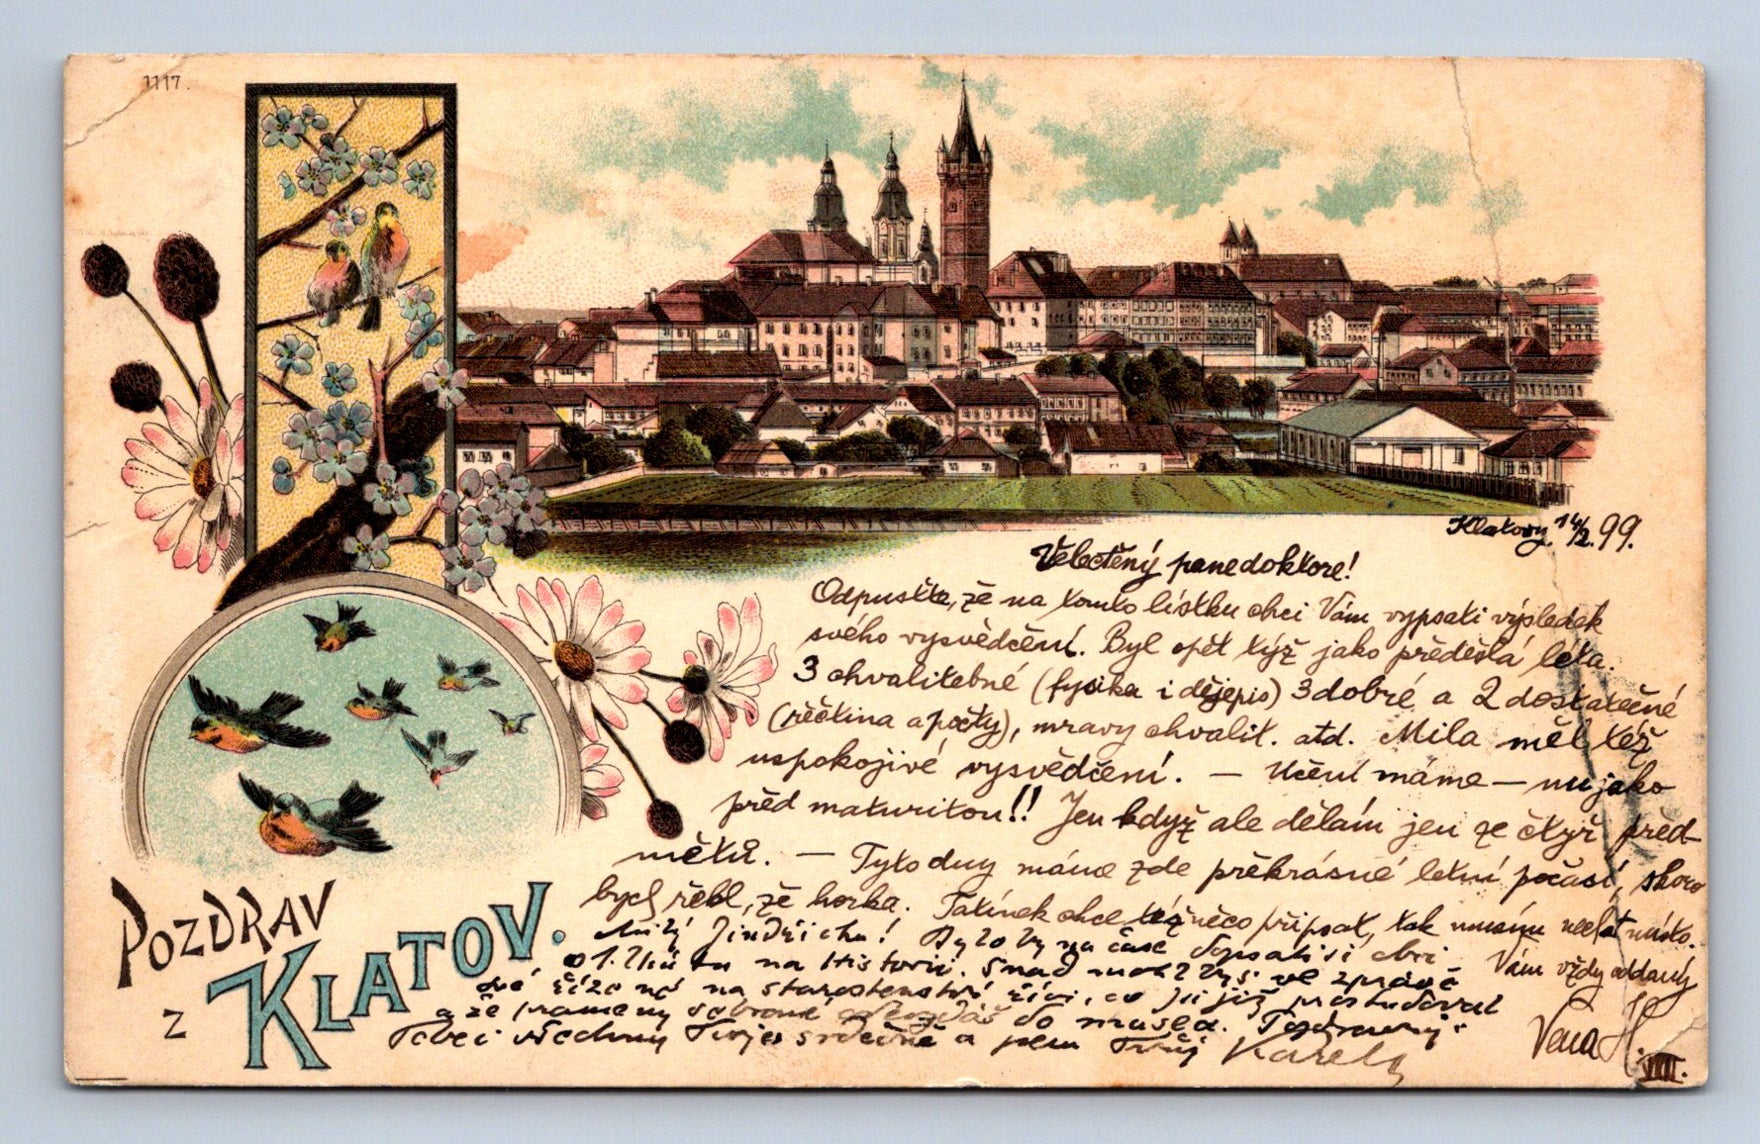 1117.
Klatovy. 14/2. 99.
Velectěný pane doktore!
Odpusťte, že na tomto lístku chci Vám vypsati výsledek
svého vysvědčení. Byl opět týž jako předešlá léta.
3 chvalitebné (fysika i dějepis) 3 dobré a 2 dostatečné
(řečtina a počty), mravy chvalit. atd. Mila měl též
uspokojivé vysvědčení. — Učení máme — nu jako
před maturitou!! Jen když ale dělám jen ze čtyř před-
mětů. — Tyto dny máme zde překrásné letní počasí, skoro
bych řekl, že horka. Tatínek chce též něco připsat, tak musím nechat místo.
Milý Jindřichu! Bylo by na čase
na Historii. Snad mohl bys ve zprávě
na starostenství
a že prameny do musea. Pozdravuji
Tebe i všechny Tvoje srdečně a jsem Tvůj Karel
Vám vždy oddaný
Vena H.
VIII.
POZDRAV
Z KLATOV.